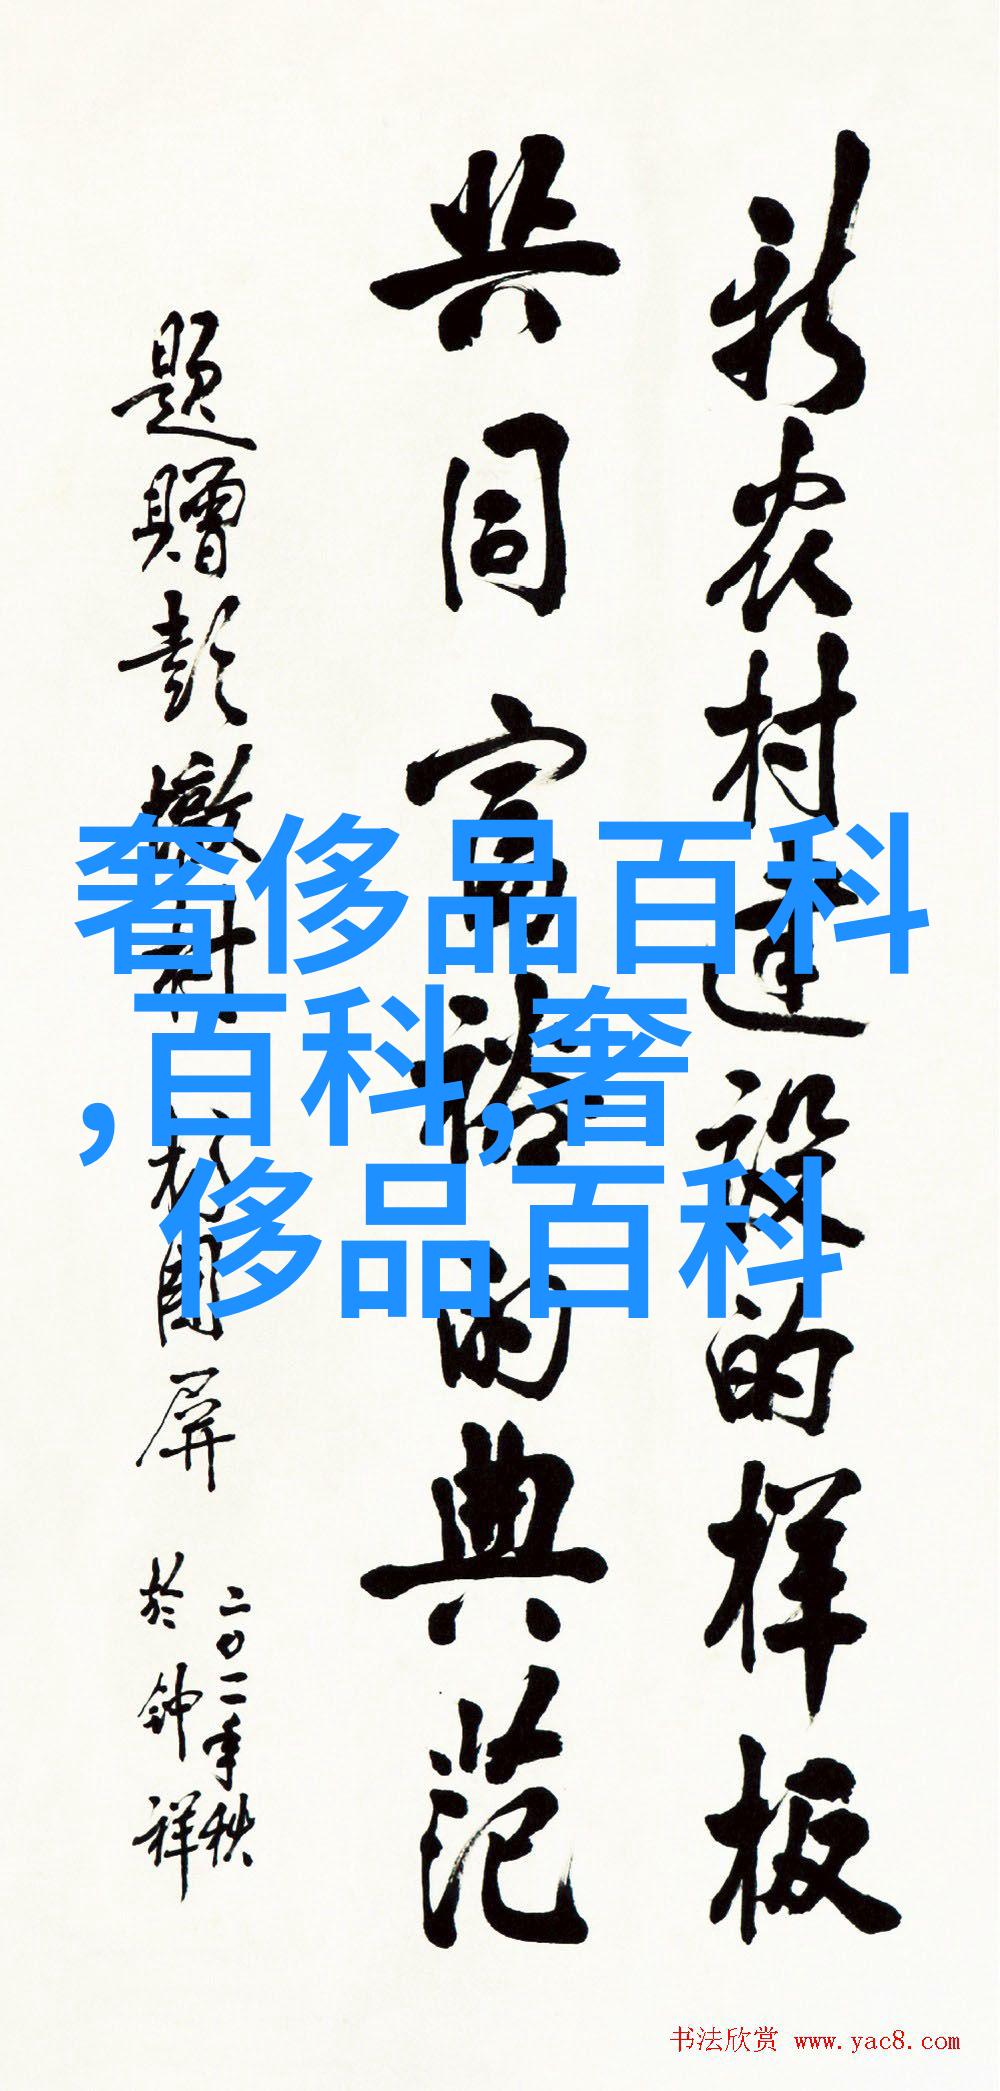 新农村建设的样板
共同富裕的典范
题赠彭墩村 屏
二〇一一年秋
於钟祥
奢侈品百科
,百科,奢
侈品百科
书法欣赏 www.yac8.com